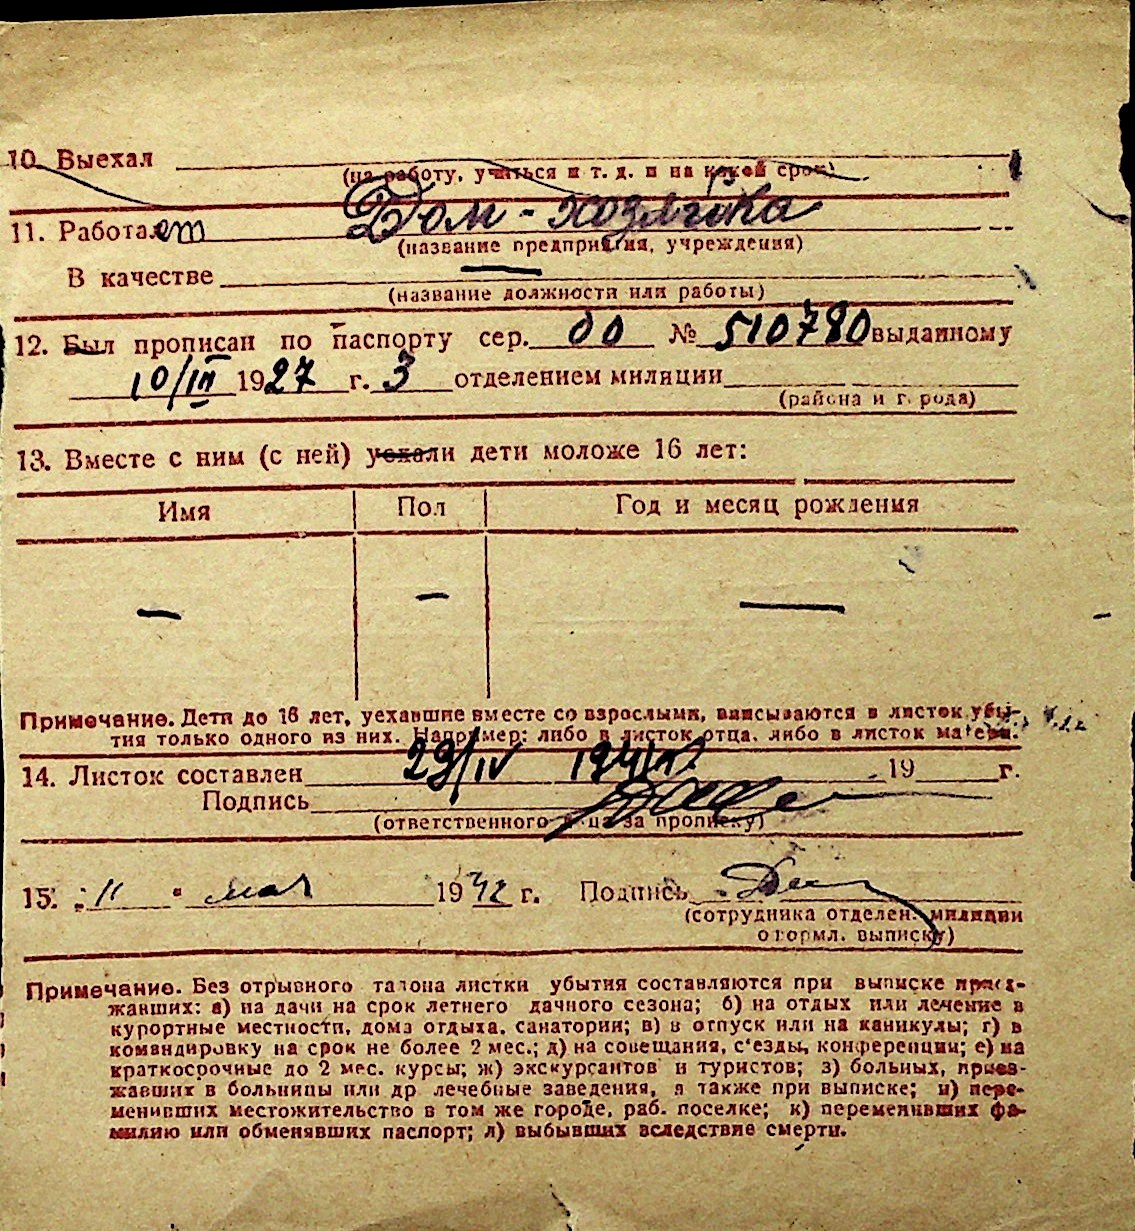 10. Выехал
(на работу, учиться и т. д. и на какой срок)
11. Работает Дом-хозяйка
(название предприятия, учреждения)
В качестве —
(название должности или работы)
12. Был прописан по паспорту сер. 00 № 510780 выданному
10/III 1927 г. 3 отделением милиции
(района и города)
13. Вместе с ним (с ней) уехали дети моложе 16 лет:
Имя Пол Год и месяц рождения
— — —
Примечание. Дети до 16 лет, уехавшие вместе со взрослыми, вписываются в листок убы-
тия только одного из них. Например: либо в листок отца, либо в листок матери.
14. Листок составлен 29/IV 194 19 г.
Подпись
(ответственного лица за прописку)
15. „11" мая 1942 г. Подпись
(сотрудника отделен. милиции
оформл. выписку)
Примечание. Без отрывного талона листки убытия составляются при выписке приез-
жавших: а) на дачи на срок летнего дачного сезона; б) на отдых или лечение в
курортные местности, дома отдыха, санатории; в) в отпуск или на каникулы; г) в
командировку на срок не более 2 мес.; д) на совещания, с'езды, конференции; е) на
краткосрочные до 2 мес. курсы; ж) экскурсантов и туристов; з) больных, приез-
жавших в больницы или др лечебные заведения, а также при выписке; и) пере-
менивших местожительство в том же городе, раб. поселке; к) переменивших фа-
милию или обменявших паспорт; л) выбывших вследствие смерти.